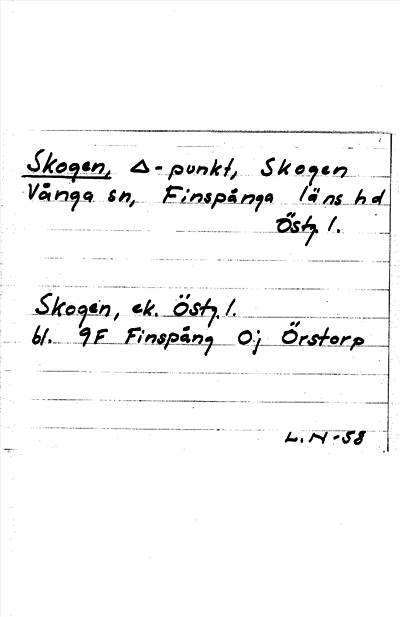 Skogen, Δ-punkt, Skogen
Vånga sn, Finspånga läns hd
Östg. l.
Skogen, ek. Östg. l.
bl. 9F Finspång 0j Örstorp
L.N-58